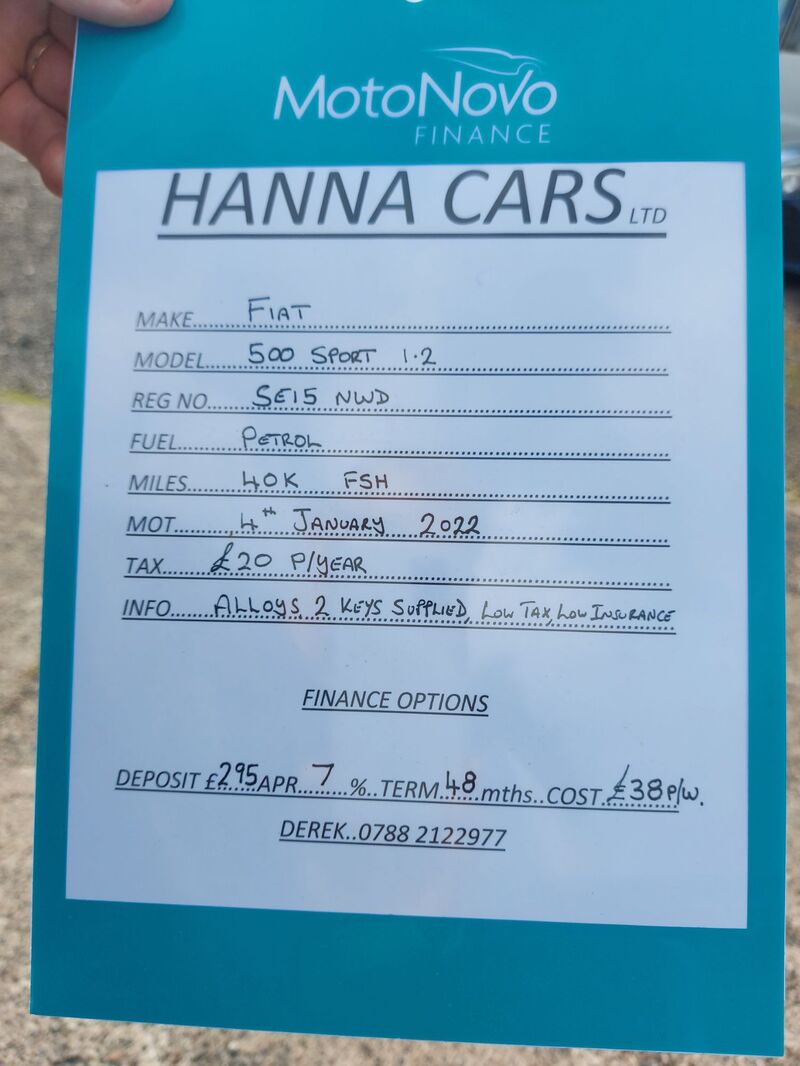 MotoNovo
FINANCE
HANNA CARS LTD
MAKE...... FIAT
MODEL.... 500 SPORT 1.2
REG NO..... SE15 NWD
FUEL....... PETROL
MILES..... 40K FSH
MOT....... 4th JANUARY 2022
TAX...... £20 P/YEAR
INFO...... ALLOYS, 2 KEYS SUPPLIED, LOW TAX, LOW INSURANCE
FINANCE OPTIONS
DEPOSIT £295 APR 7 %..TERM 48 mths..COST £38 P/W.
DEREK..0788 2122977